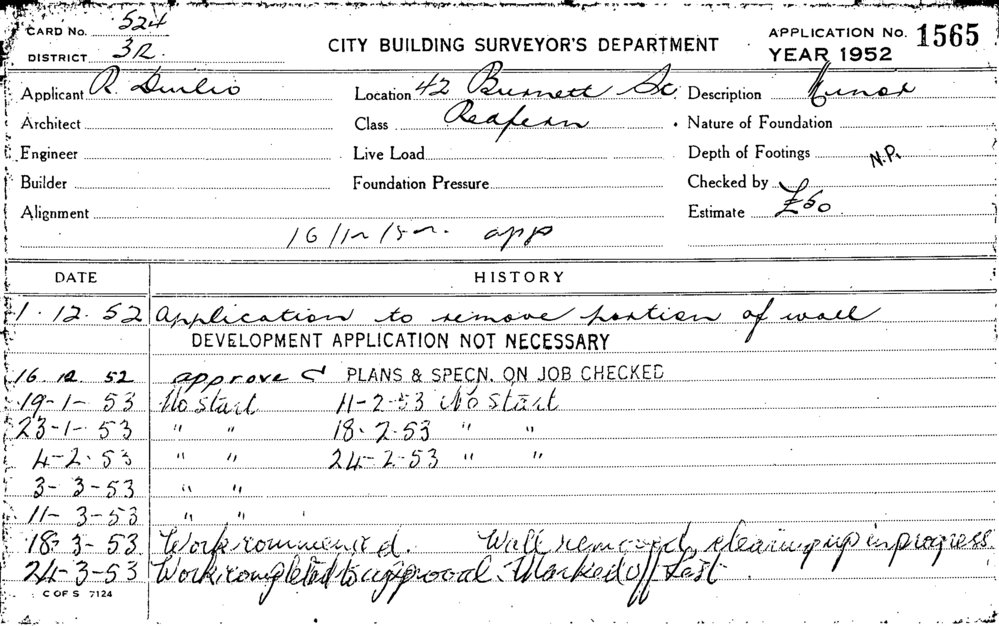 CARD NO. 524
DISTRICT 3R
CITY BUILDING SURVEYOR'S DEPARTMENT
APPLICATION NO. 1565
YEAR 1952
Applicant R. Location 42 Burnett St. Description Minor
Architect Class Redfern Nature of Foundation
Engineer Live Load Depth of Footings N.P.
Builder Foundation Pressure Checked by
Alignment Estimate £50
16/12/52. app
DATE HISTORY
1.12.52 Application to remove portion of wall
DEVELOPMENT APPLICATION NOT NECESSARY
16.12.52 approved PLANS & SPECN. ON JOB CHECKED
19-1-53 No Start 11-2-53 No Start
23-1-53 " " 18-2-53 " "
4-2-53 " " 24-2-53 " "
3-3-53 " "
11-3-53 " "
18-3-53 Work commenced. Wall removed, clearing up in progress.
24-3-53 Work completed to approval. Marked off List.
C OF S 7124